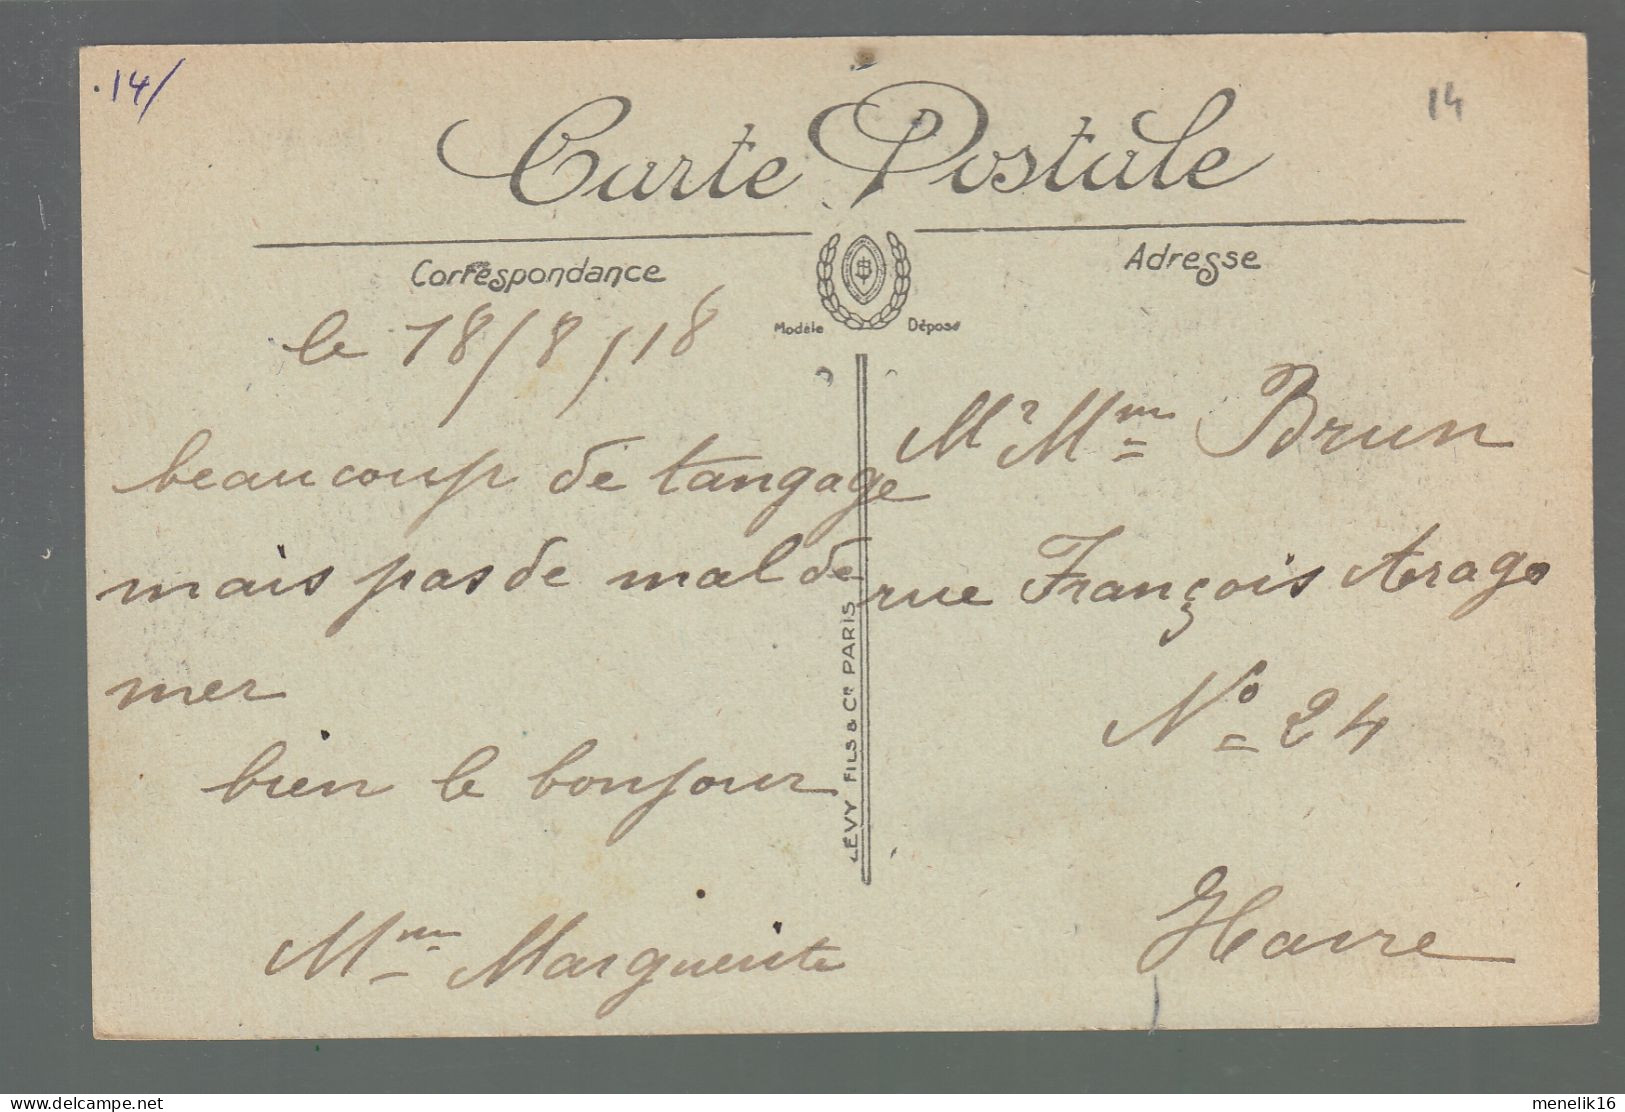 .14/
14
Carte Postale
Correspondance
Adresse
Modèle Déposé
le 18/8/18
beaucoup de tangage
mais pas de mal de
mer
bien le bonjour
Mme Marguerite
LÉVY FILS & Cie PARIS
Mr Mme Brun
rue François Arago
No 24
Havre
delcampe.net
menelik16